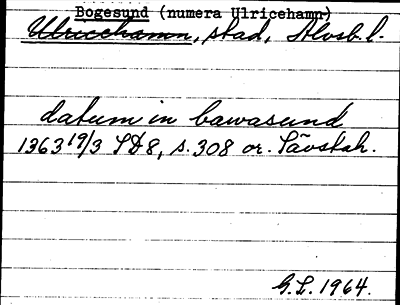 Bogesund (numera Ulricehamn)
Ulricehamn, stad, Älvsb. l.
datum in bawasund
1363 19/3 SD 8, s. 308 or.
G.L. 1964.